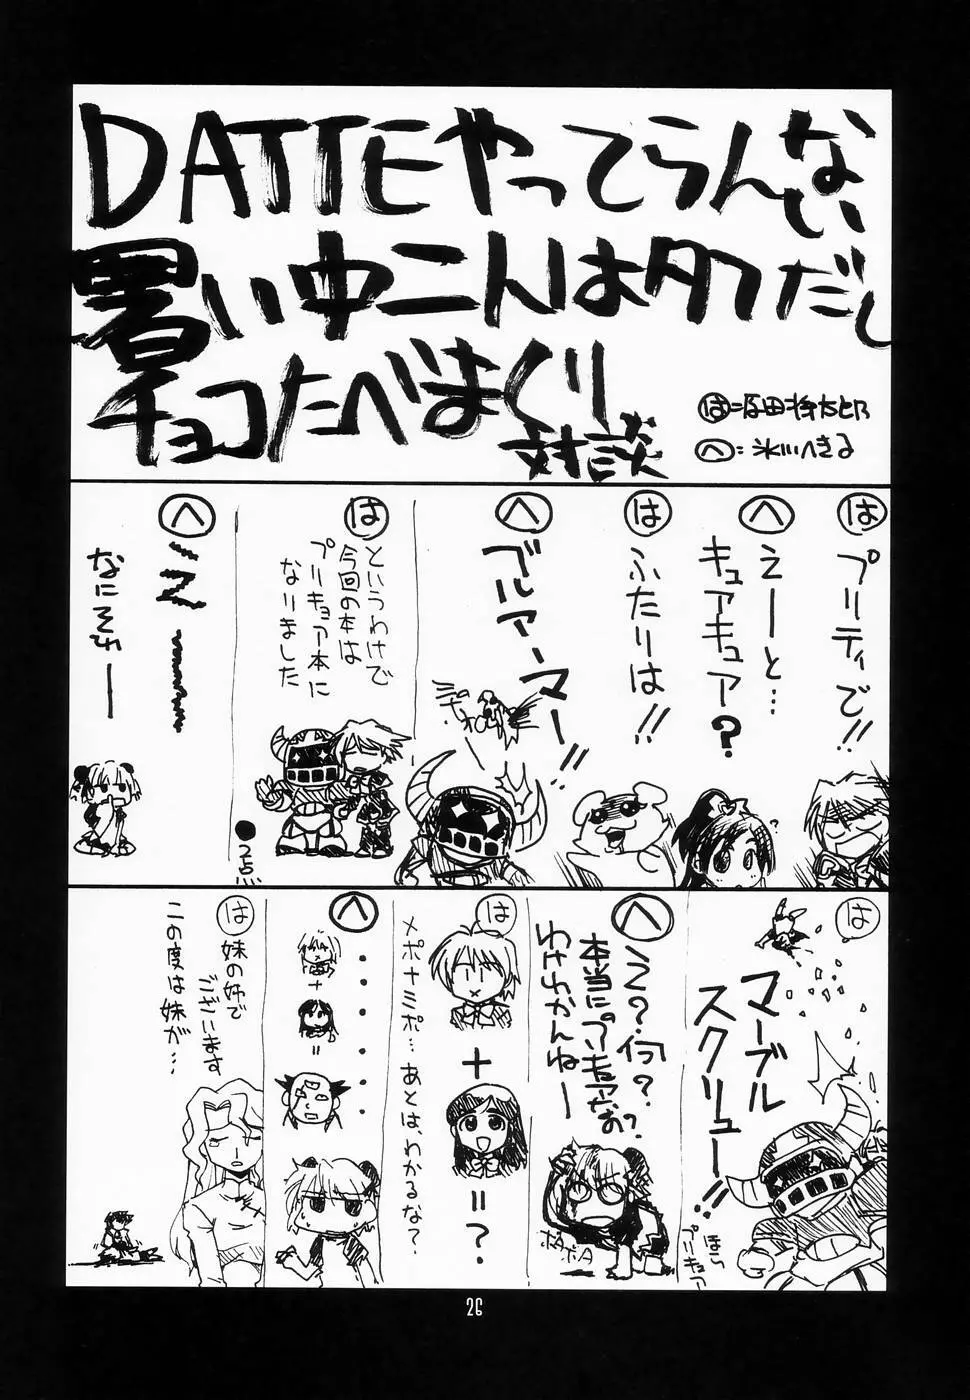 DATTEやってらんない
暑い中こんはタフだし
チョコたべまくり
対談
は:原田将太郎
へ:氷川へきる
は
プリティで!!
へ
えーと…
キュアキュア?
は
ふたりは!!
へ
ブルアーマー!!
は
というわけで
今回の本は
プリキュア本に
なりました
●2点
へ
え〜〜〜
なにそれー
は
マーブル
スクリュー!!
ほら
プリキュア
へ
え?何?
本当にプリキュアなの?
わけわかんねー
ボタ
ボタ
は
+
=?
メポナミポ…あとは、わかるな?
へ
・・・・・・・
+
=
は
妹の姉で
ございます
この度は妹が…
26